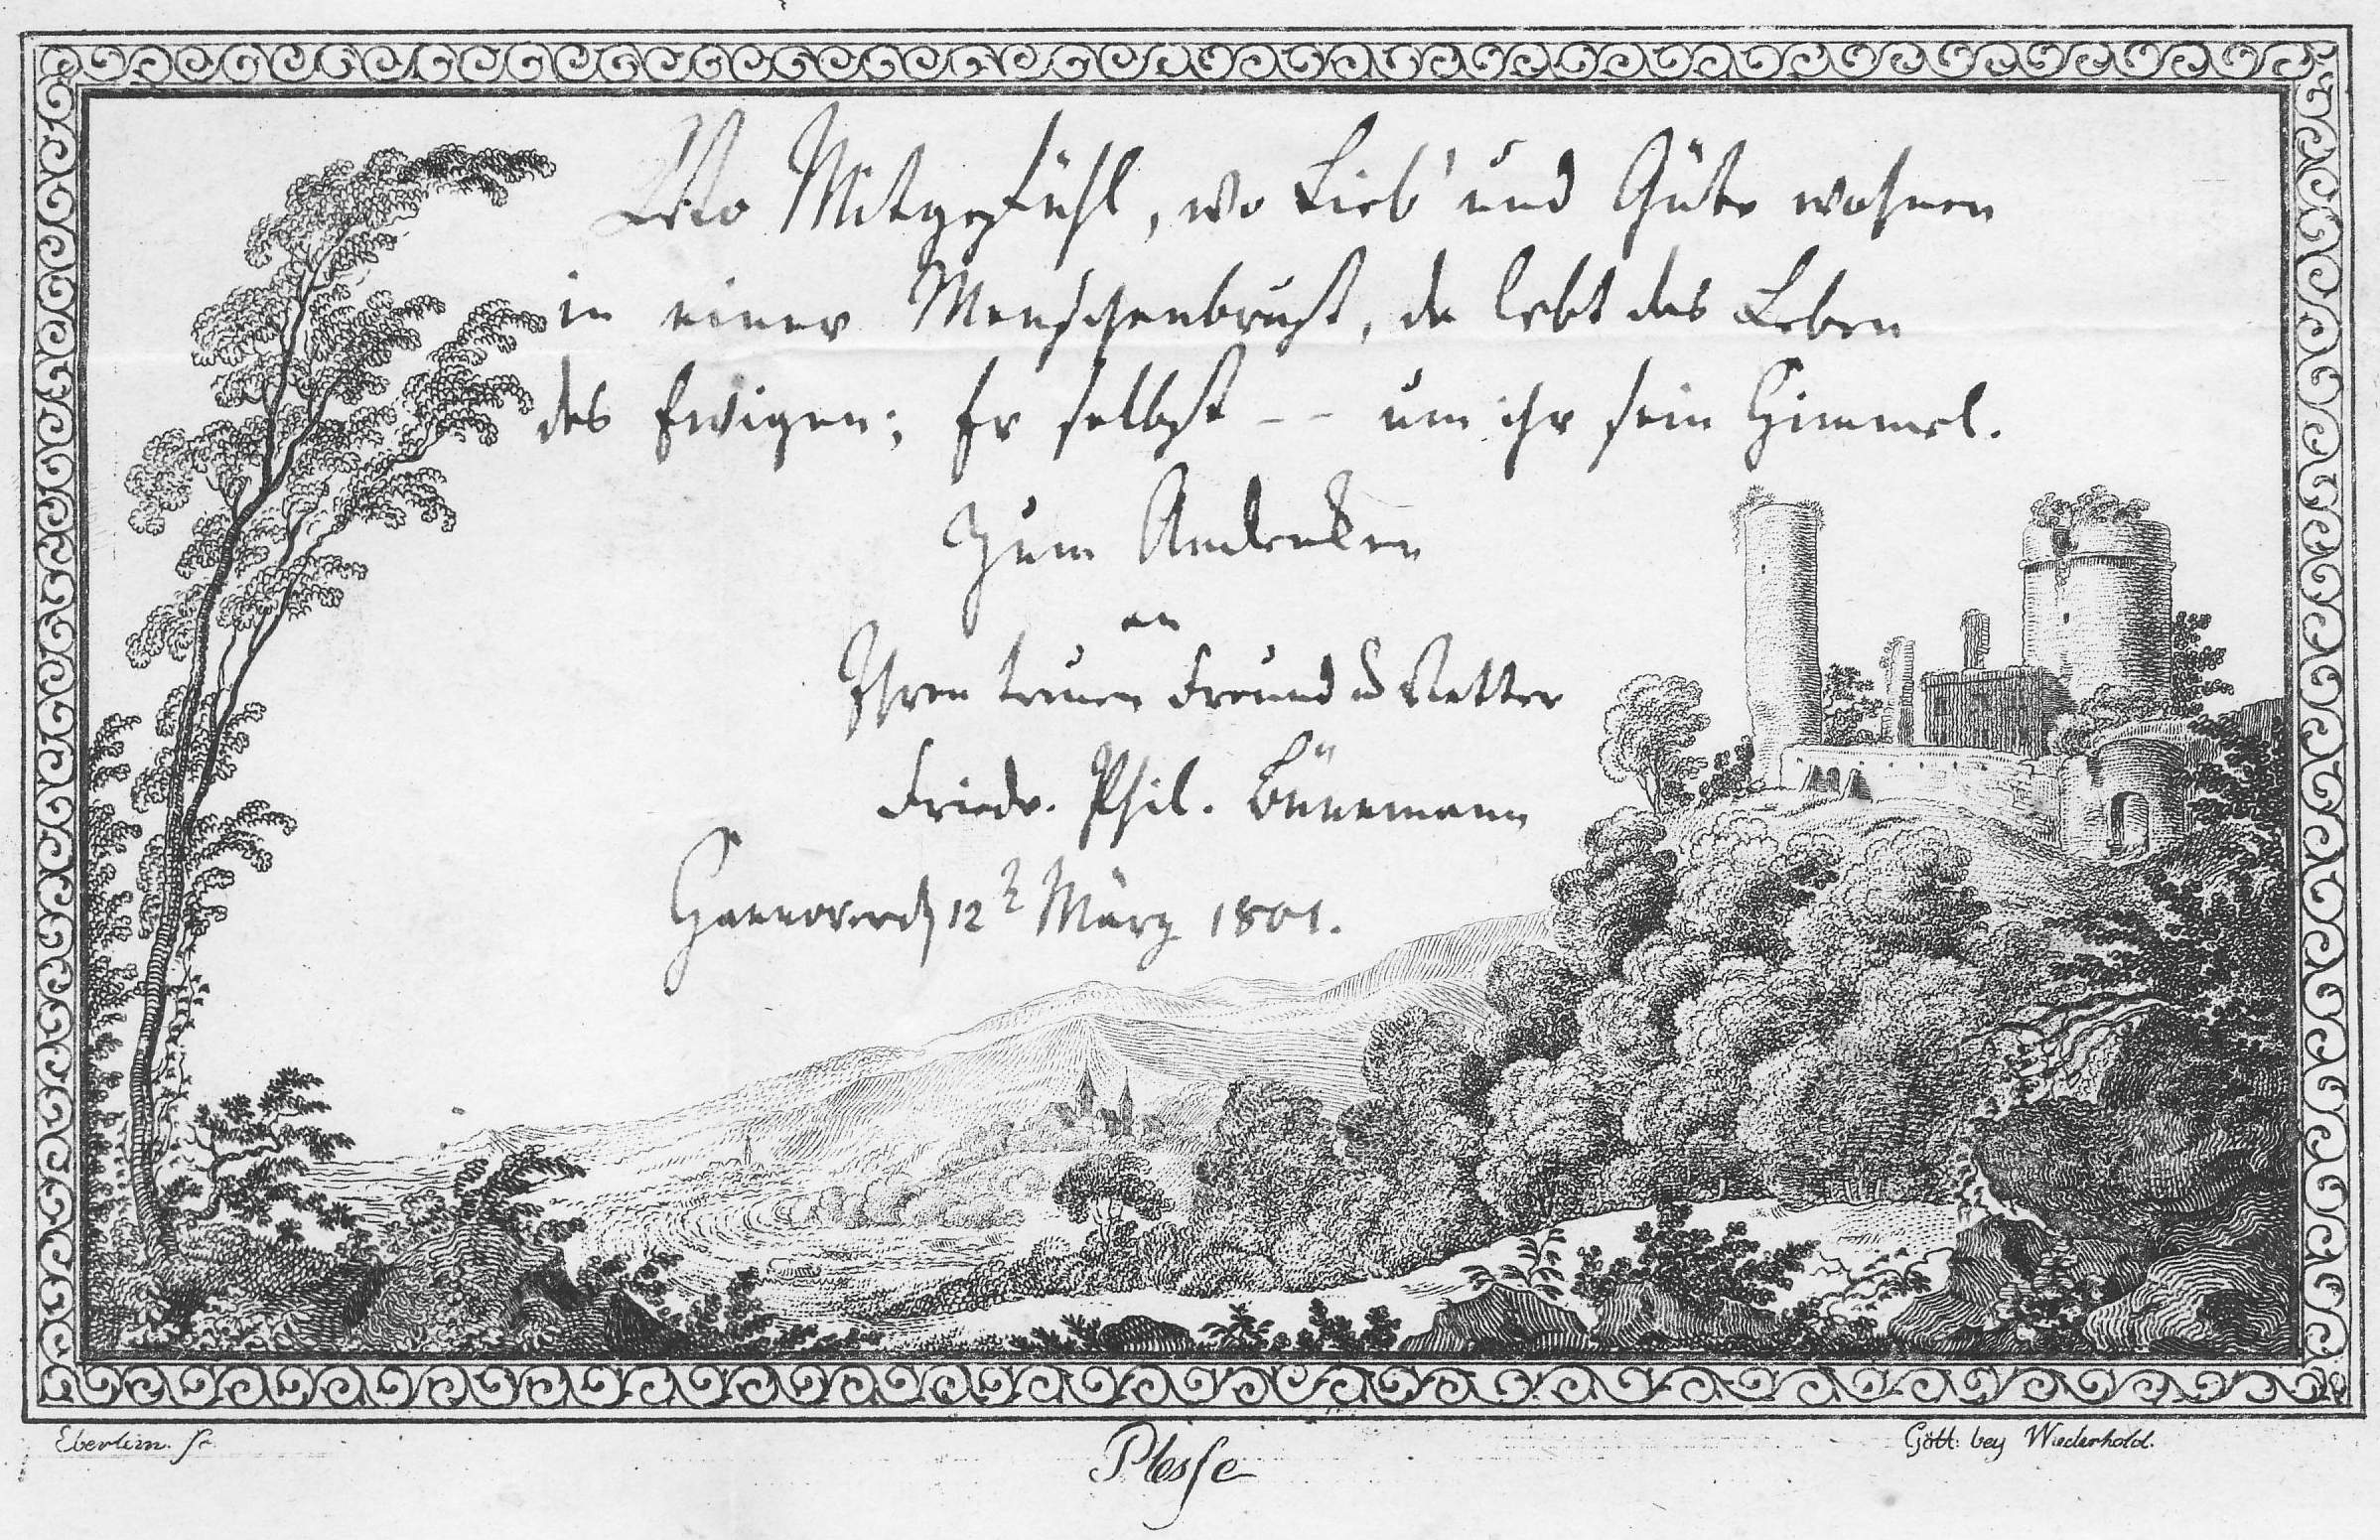 Wo Mitgefühl, wo Lieb' und Güte wohnen
in einer Menschenbrust, da lebt das Leben
des Ewigen; Er selbst -- um ihr sein Himmel.
Zum Andenken
an
Ihren treuen Freund u Vetter
Friedr. Phil. Bünemann
Hannover d 12 März 1801.
Eberlein. sc
Plesse
Gött: bey Wiederhold.